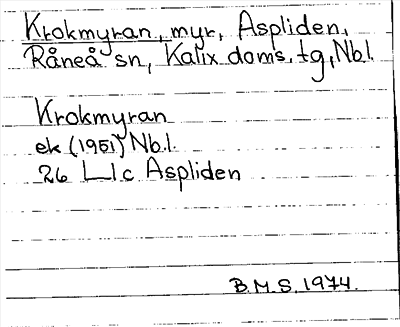 Krokmyran, myr, Aspliden,
Råneå sn, Kalix doms.tg, Nb.l.
Krokmyran
ek (1951) Nb.l.
26 L l.c Aspliden
B.M.S. 1974.